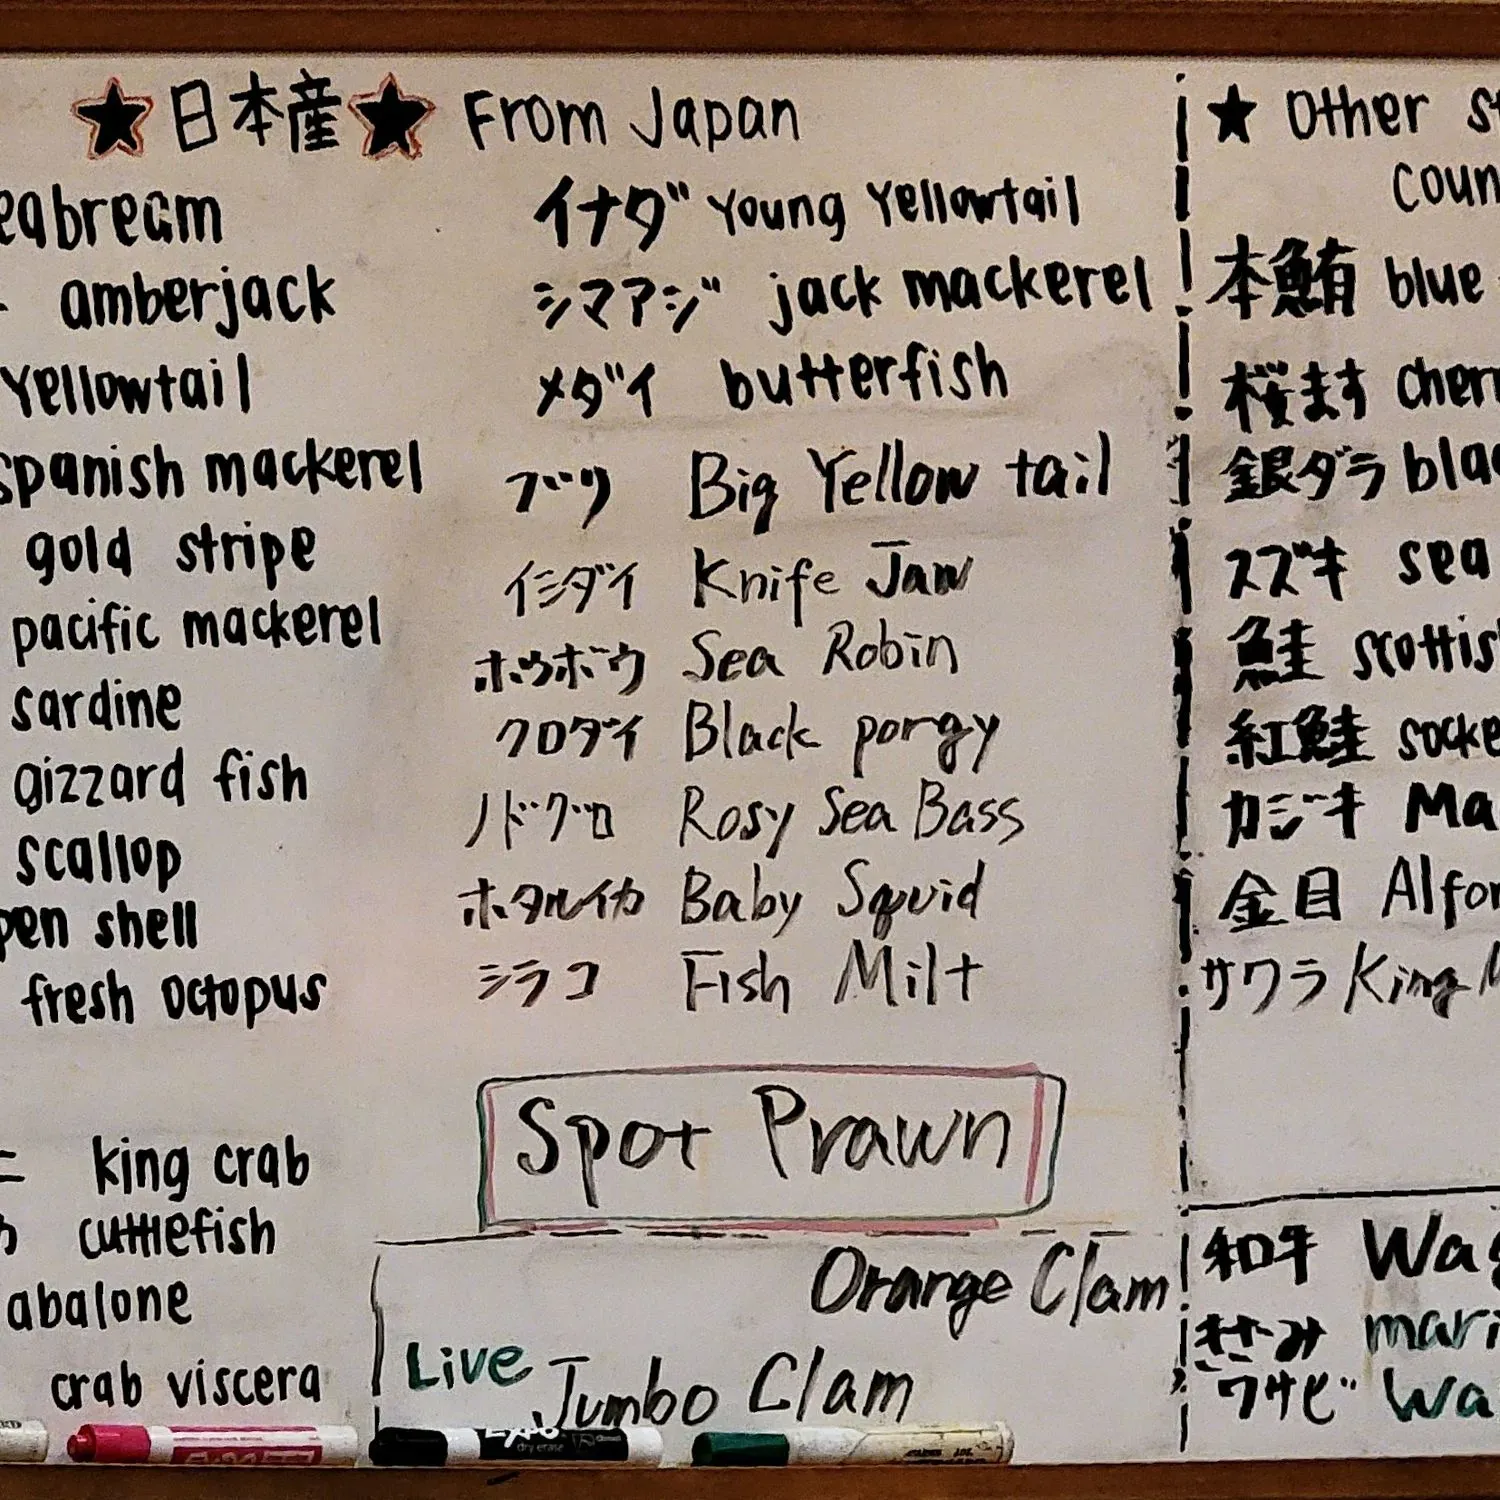 ★日本産★ From Japan
eabream
amberjack
Yellowtail
spanish mackerel
gold stripe
pacific mackerel
sardine
gizzard fish
scallop
pen shell
fresh octopus
king crab
cuttlefish
abalone
crab viscera
イナダ Young Yellowtail
シマアジ jack mackerel
メダイ butterfish
ブリ Big Yellow tail
イシダイ Knife Jaw
ホウボウ Sea Robin
クロダイ Black porgy
ノドグロ Rosy Sea Bass
ホタルイカ Baby Squid
シラコ Fish Milt
Spot Prawn
Orange Clam
Live Jumbo Clam
★ Other st
Coun
本鮪 blue
桜ます cherr
銀ダラ blac
スズキ sea
鮭 scottis
紅鮭 socke
カジキ Ma
金目 Alfon
サワラ King M
和牛 Wag
きざみ mari
ワサビ Wa
EXPO
dry erase